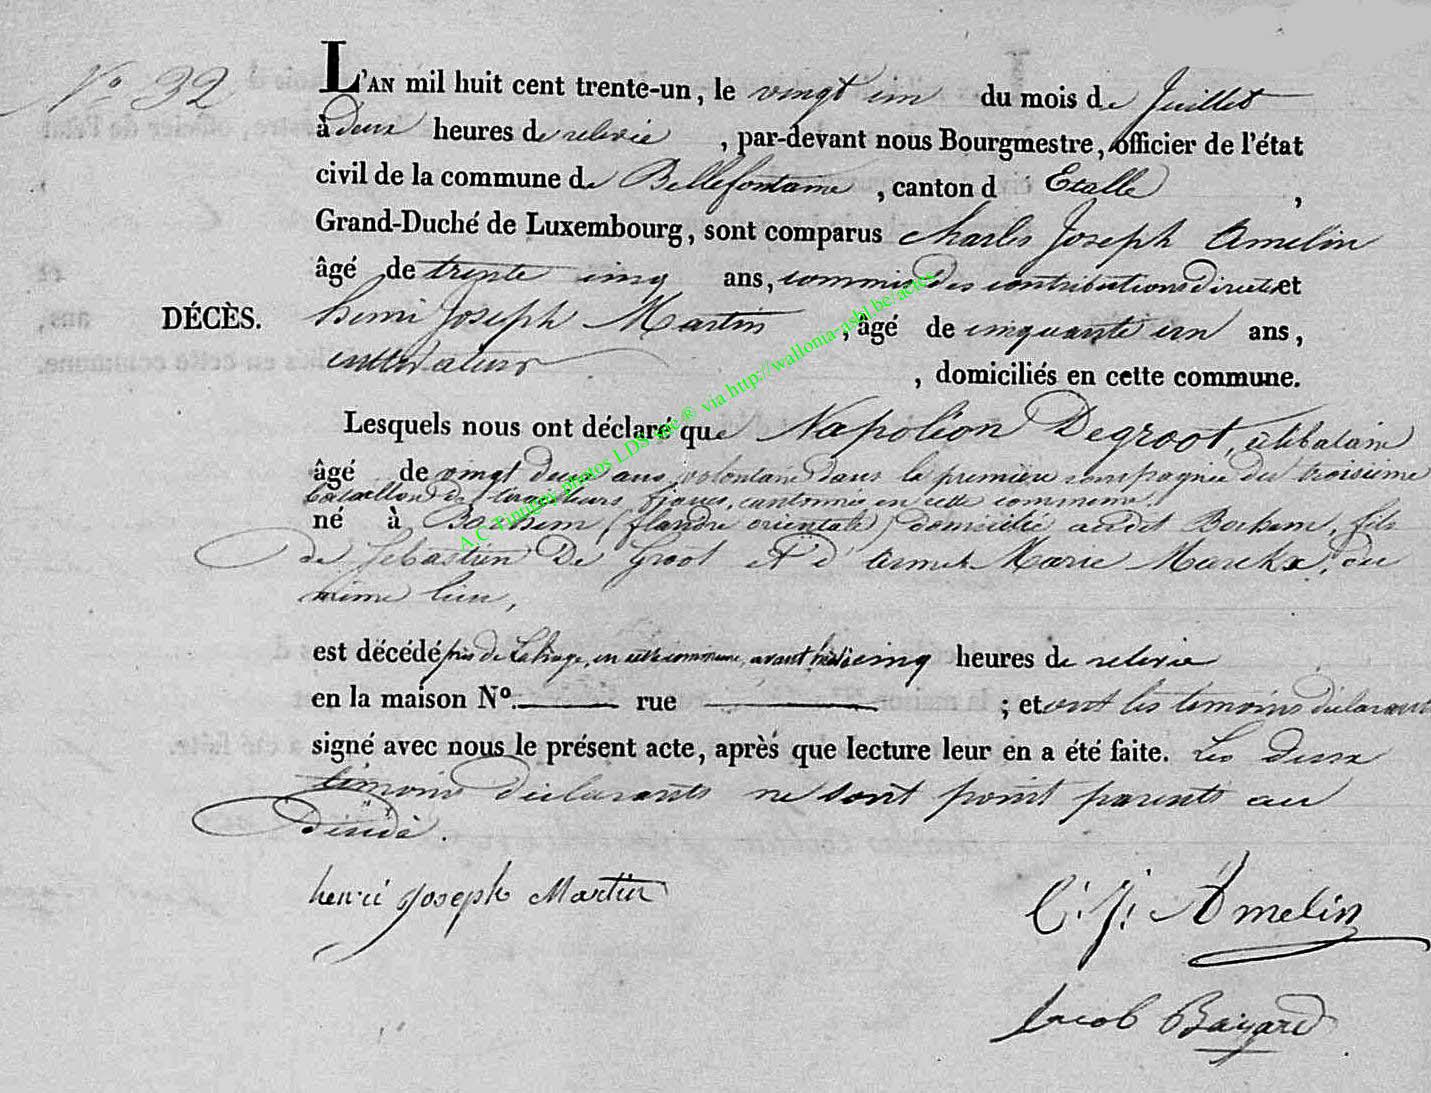 N° 32
L'AN mil huit cent trente-un, le vingt un du mois de Juillet
à deux heures de relevée, par-devant nous Bourgmestre, officier de l'état
civil de la commune de Bellefontaine, canton d'Etalle,
Grand-Duché de Luxembourg, sont comparus Charles Joseph Amelin
âgé de trente cinq ans, commis des contributions directes et
DÉCÈS. henri Joseph Martin, âgé de cinquante un ans,
cultivateur, domiciliés en cette commune.
Lesquels nous ont déclaré que Napoléon Degroot, célibataire
âgé de vingt deux ans volontaire dans la première compagnie du troisième
bataillon de tirailleurs francs, cantonnée en cette commune,
né à Bochem (flandre orientale) domicilié audit Bochem, fils
de Sébastien De Groot et d' Marie, du
même lieu,
est décédé près de Lahage, en cette commune, avant hier cinq heures de relevée
en la maison N°. rue ; et ont les témoins déclarants
signé avec nous le présent acte, après que lecture leur en a été faite. Les deux
témoins déclarants ne sont point parents au
décédé.
henri Joseph Martin
C. J. Amelin
Jacob Bayard
A.C Tintigny photos LDS ® via http://wallonia-asbl.be/actes